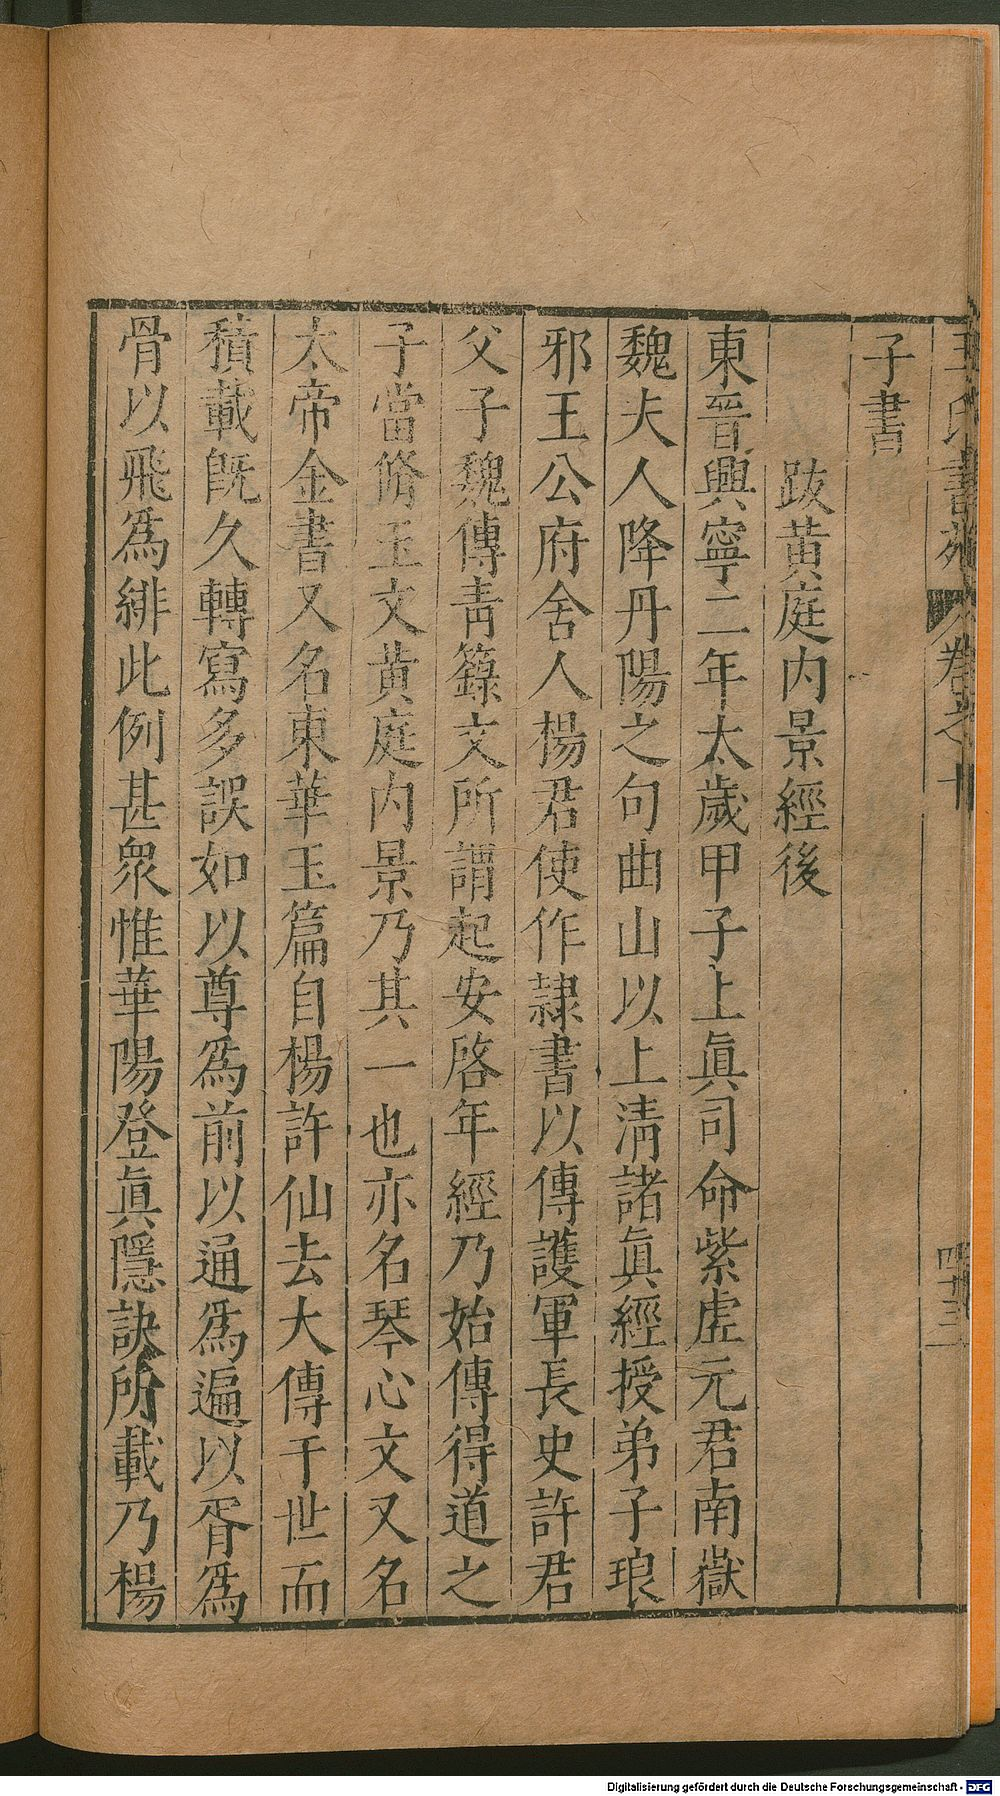 王氏書苑 卷之十
四十三
子書
跋黄庭内景經後
東晉興寧二年太歲甲子上眞司命紫虚元君南嶽
魏夫人降丹陽之句曲山以上淸諸眞經授弟子琅
邪王公府舍人楊君使作隷書以傳護軍長史許君
父子魏傳靑籙文所謂起安啓年經乃始傳得道之
子當脩玉文黄庭内景乃其一也亦名琴心文又名
太帝金書又名東華玉篇自楊許仙去大傳于世而
積載既久轉寫多誤如以尊爲前以通爲遍以胥爲
骨以飛爲緋此例甚衆惟華陽登眞隱訣所載乃楊
Digitalisierung gefördert durch die Deutsche Forschungsgemeinschaft - DFG